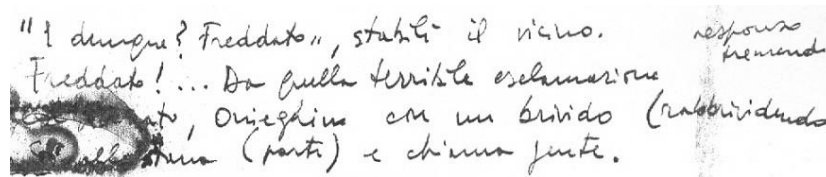 "E dunque? Freddato", stabilì il vicino. responso
Freddato!... Da quella terribile esclamazione tremendo
Onieghin con un brivido (rabbrividendo
(parte) e chiama gente.